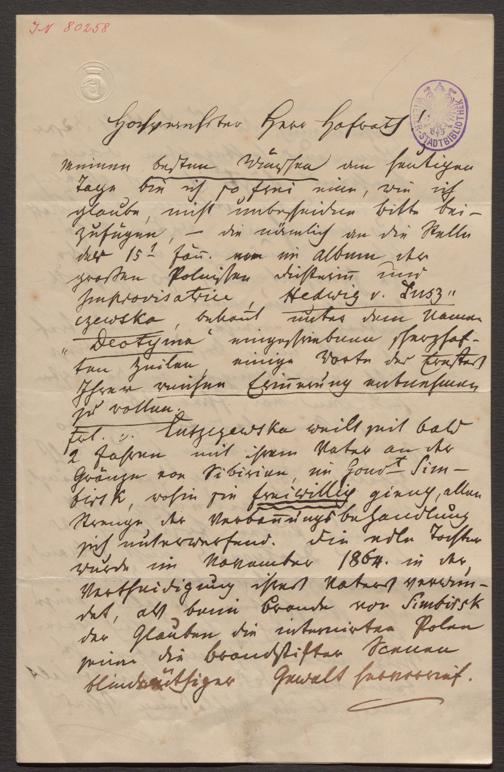 JN 80258
WIENER STADTBIBLIOTHEK
Hochverehrter Herr Hofrath!
meinen besten Wünschen am heutigen
Tage bin ich so frei eine, wie ich
glaube, nicht unbescheidene bitte bei-
zufügen, – die nämlich an die Stelle
der 15t Jän. von im Album der
großen Polnischen Dichterin und
Improvisatrice, Hedwig v. Łusz-
czewska, bekannt unter dem Namen
"Deotyma" eingeschriebenen scherzhaf-
ten Zeilen, einige Worte der
Ihrer Erinnerung
zu wollen.
Frl. v. Łuszczewska weilt seit bald
2 Jahren mit ihrem Vater an der
Gränze von Sibirien, im Gouvt Sim-
birsk, wohin sie freiwillig gieng, allen
Strenge der Verbannungsbehandlung
sich unterwerfend. Die edle Tochter
wurde im November 1864. in der
Vertheidigung ihres Vaters verwun-
det, als beim Brande von Simbirsk
der Glauben die internirten Polen
seien die Brandstifter Scenen
blindwüthiger Gewalt hervorrief.